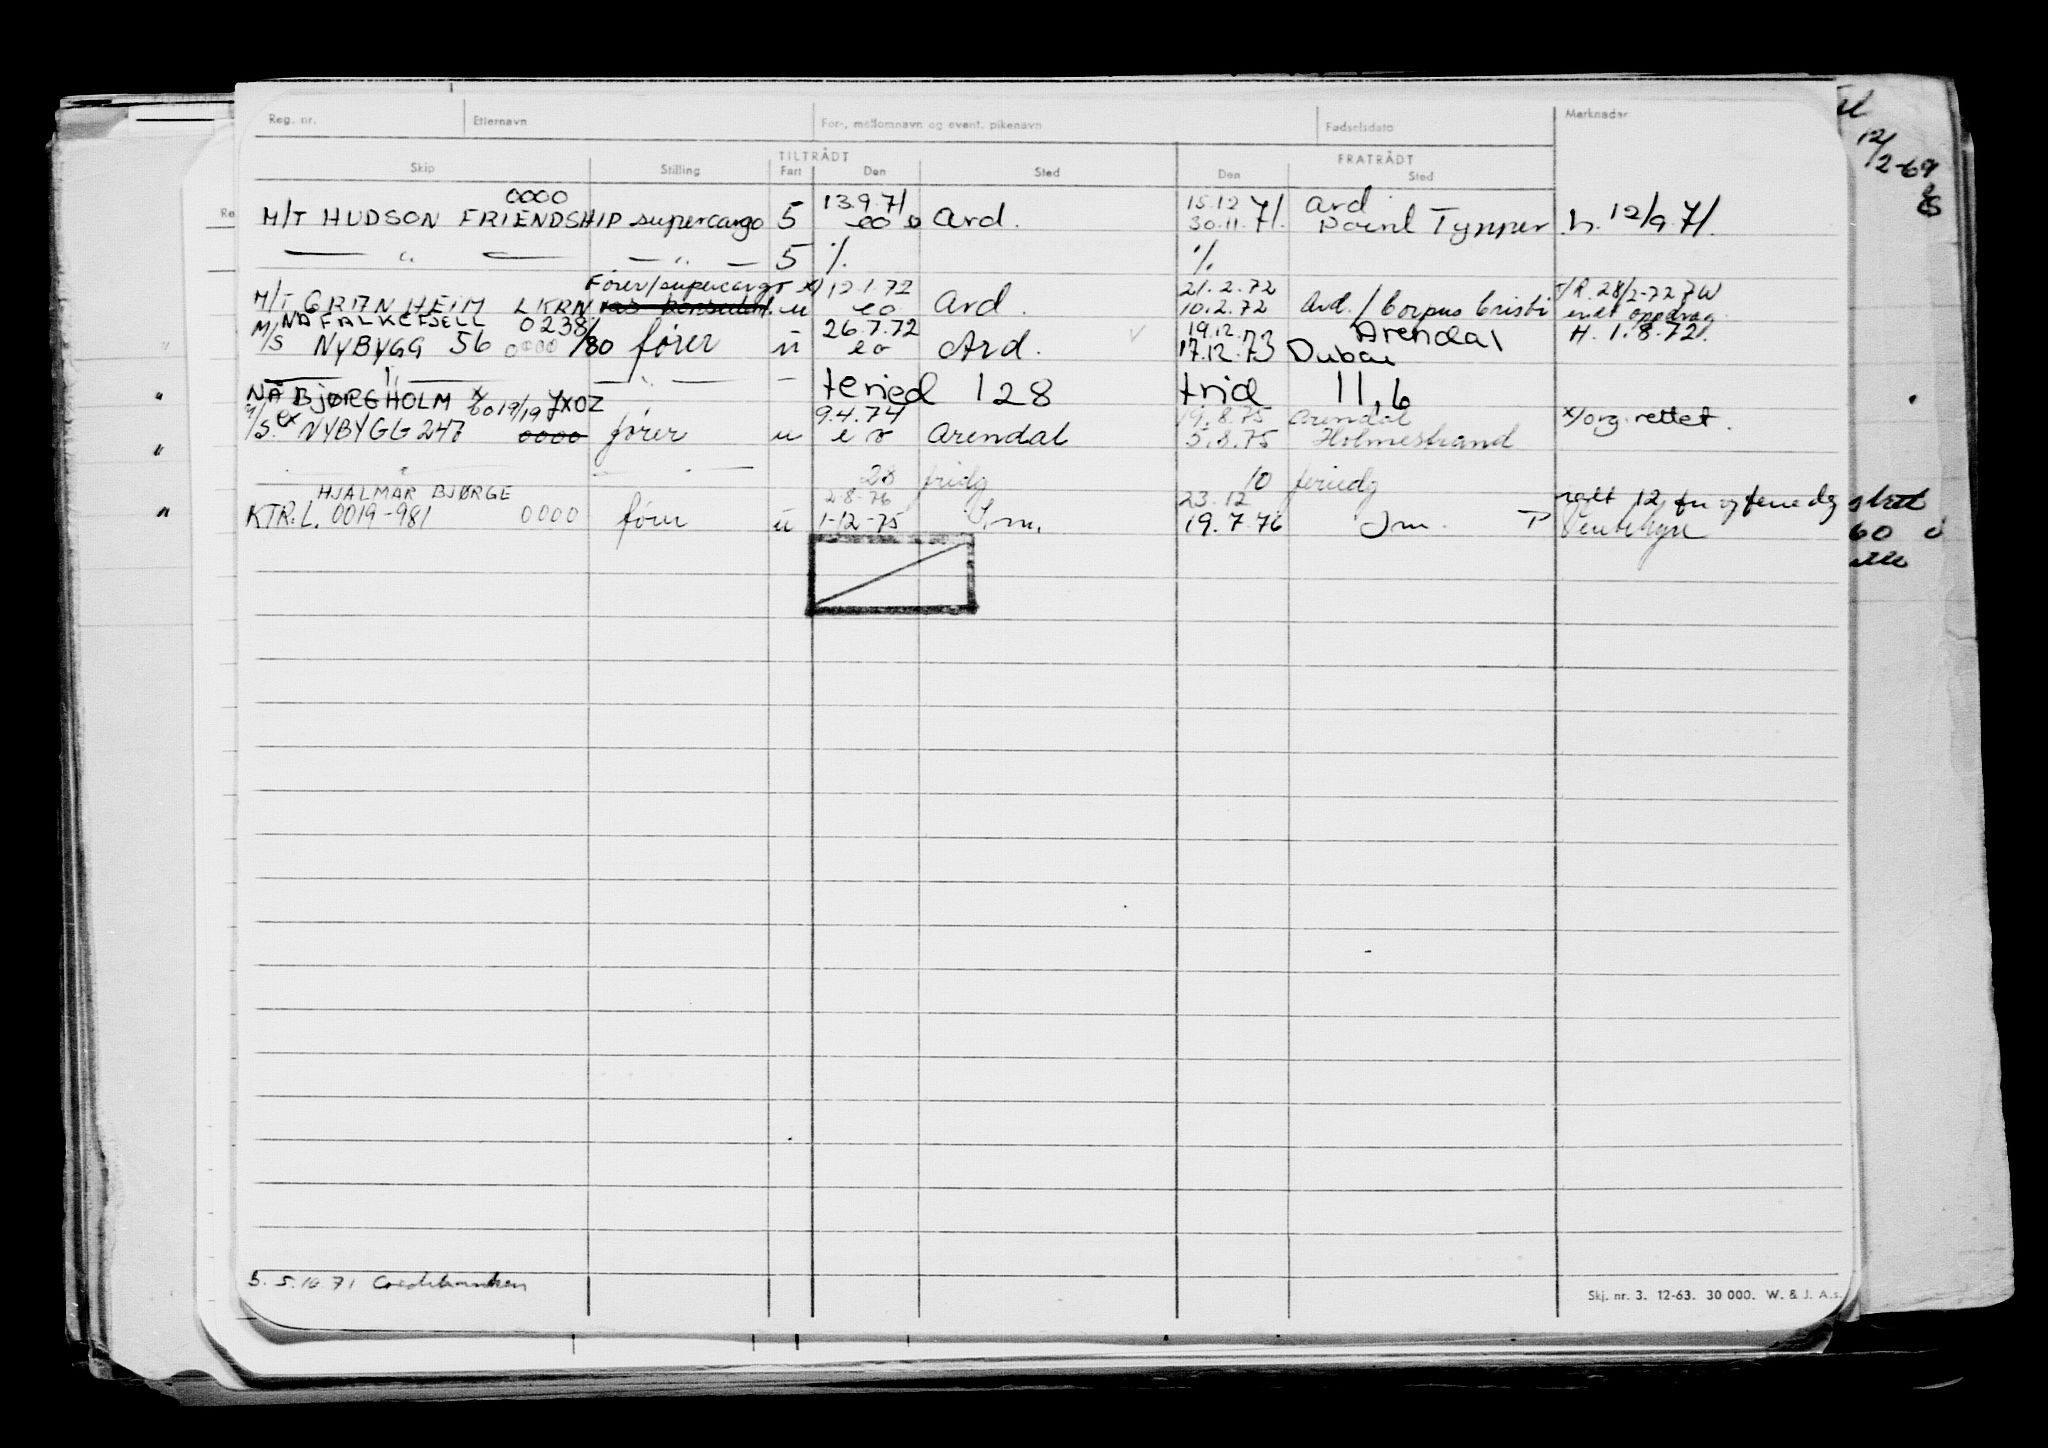 Reg. nr. Etternavn For-, mellomnavn og event. pikenavn Fødselsdato Merknader
TILTRÅDT FRATRÅDT
Skip Stilling Fart Den Sted Den Sted
0000 13.9.71 15.12 Ard
M/T HUDSON FRIENDSHIP supercargo 5 eo Ard. 30.11.71. Typper h. 12/9.71.
— " — — " — 5 % %
Fører/supercargo x) 12.1.72 21.2.72 R. 28/2-72
M/T GRANHEIM LKRN u eo Ard. 10.2.72 Ard. / Corpus Cristi endt oppdrag
NAFALKEFJELL 0238/80 26.7.72 19.12.73 Arendal H. 1.8.72.
M/S NYBYGG 56 0000 fører u eo Ard. 17.12.73 Dubai
— " — — " — — feried 128 frid 11,6
NA BJØRGHOLM x 6019/19 JXOZ 9.4.74 19.8.75 Arendal x/org. rettet.
M/S. ex NYBYGG 247 0000 fører u eo Arendal 5.8.75 Holmestrand
— " — — " — 28 fridg 10 feriedg
HJALMAR BJØRGE 2-8-76 23.12
KTR.L. 0019-981 0000 fører u 1-12-75 S.m. 19.7.76 Sm. P
B. 5.10.71 Creditbanken
Skj. nr. 3. 12-63. 30 000. W. & J. A.s.
12/2-69
60